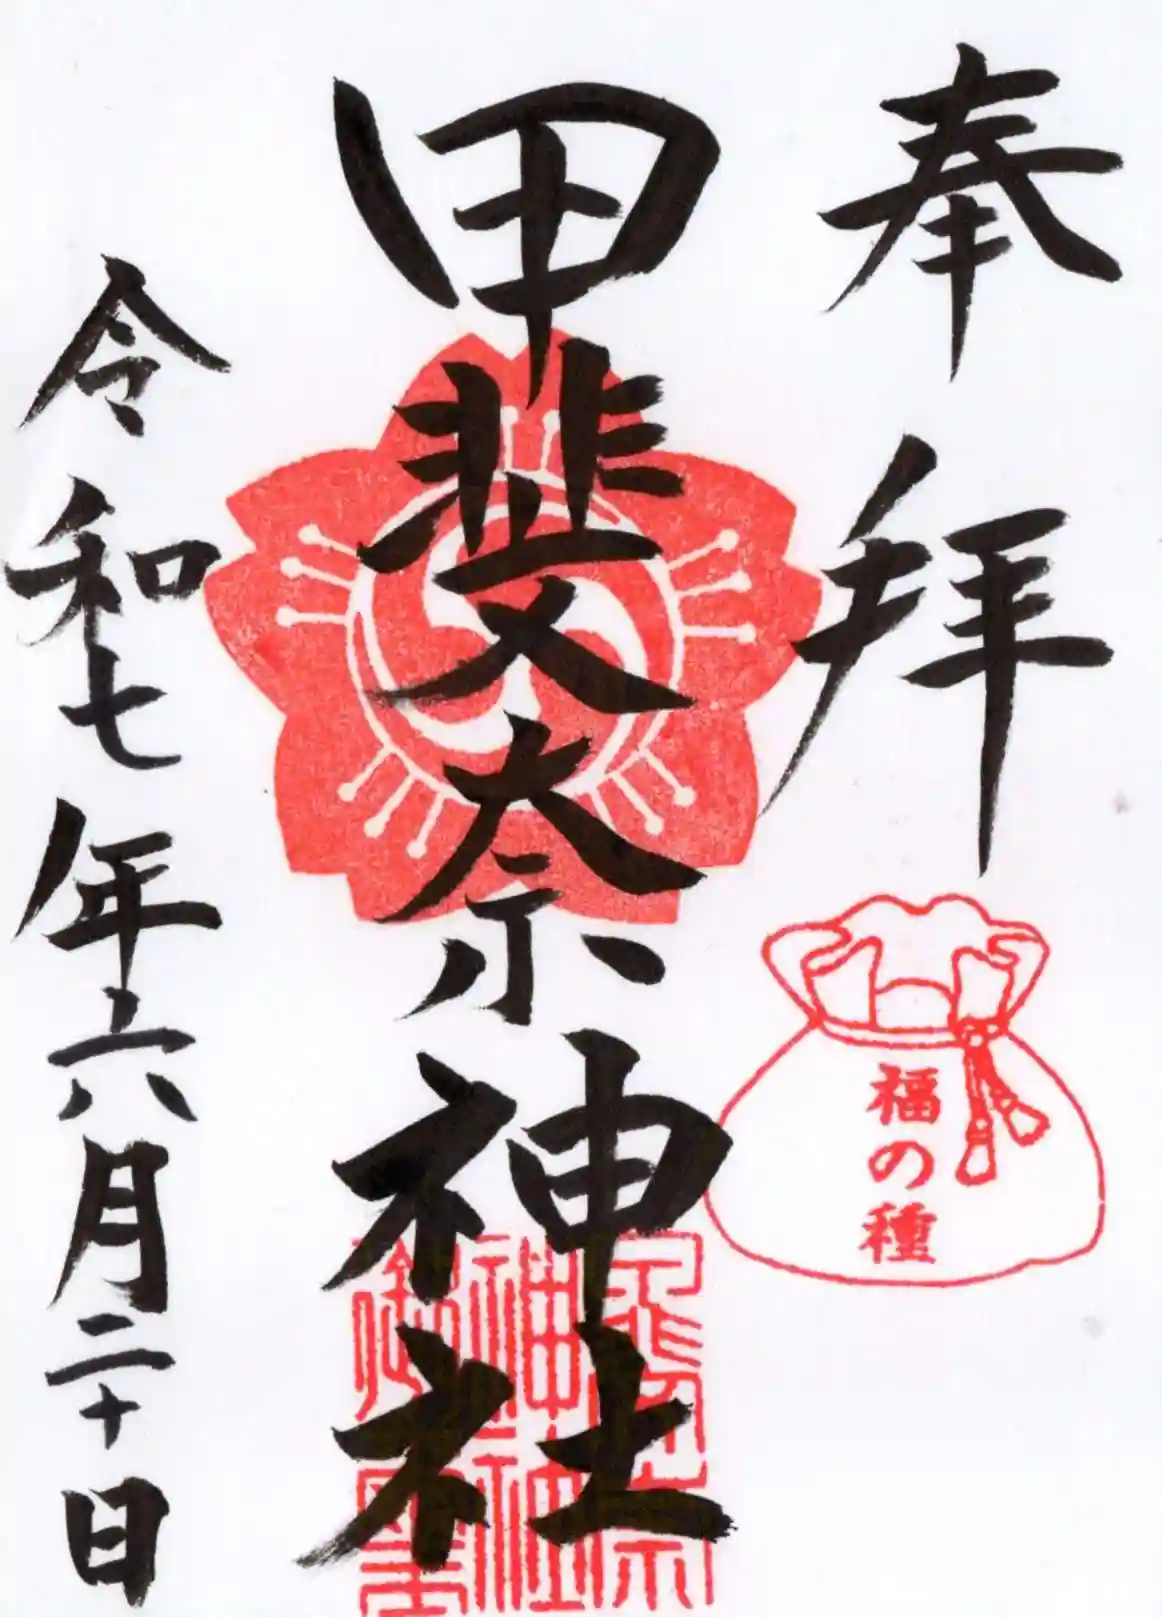 奉拝
福の種
甲斐奈神社
令和七年六月二十日